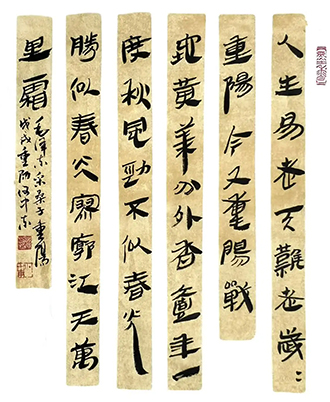 人生易老天難老歲〻
重陽今又重陽戰
地黃華分外香壹年一
度秋風勁不似春光
勝似春光寥廓江天萬
里霜
毛澤東采桑子重陽
戊戌重阳